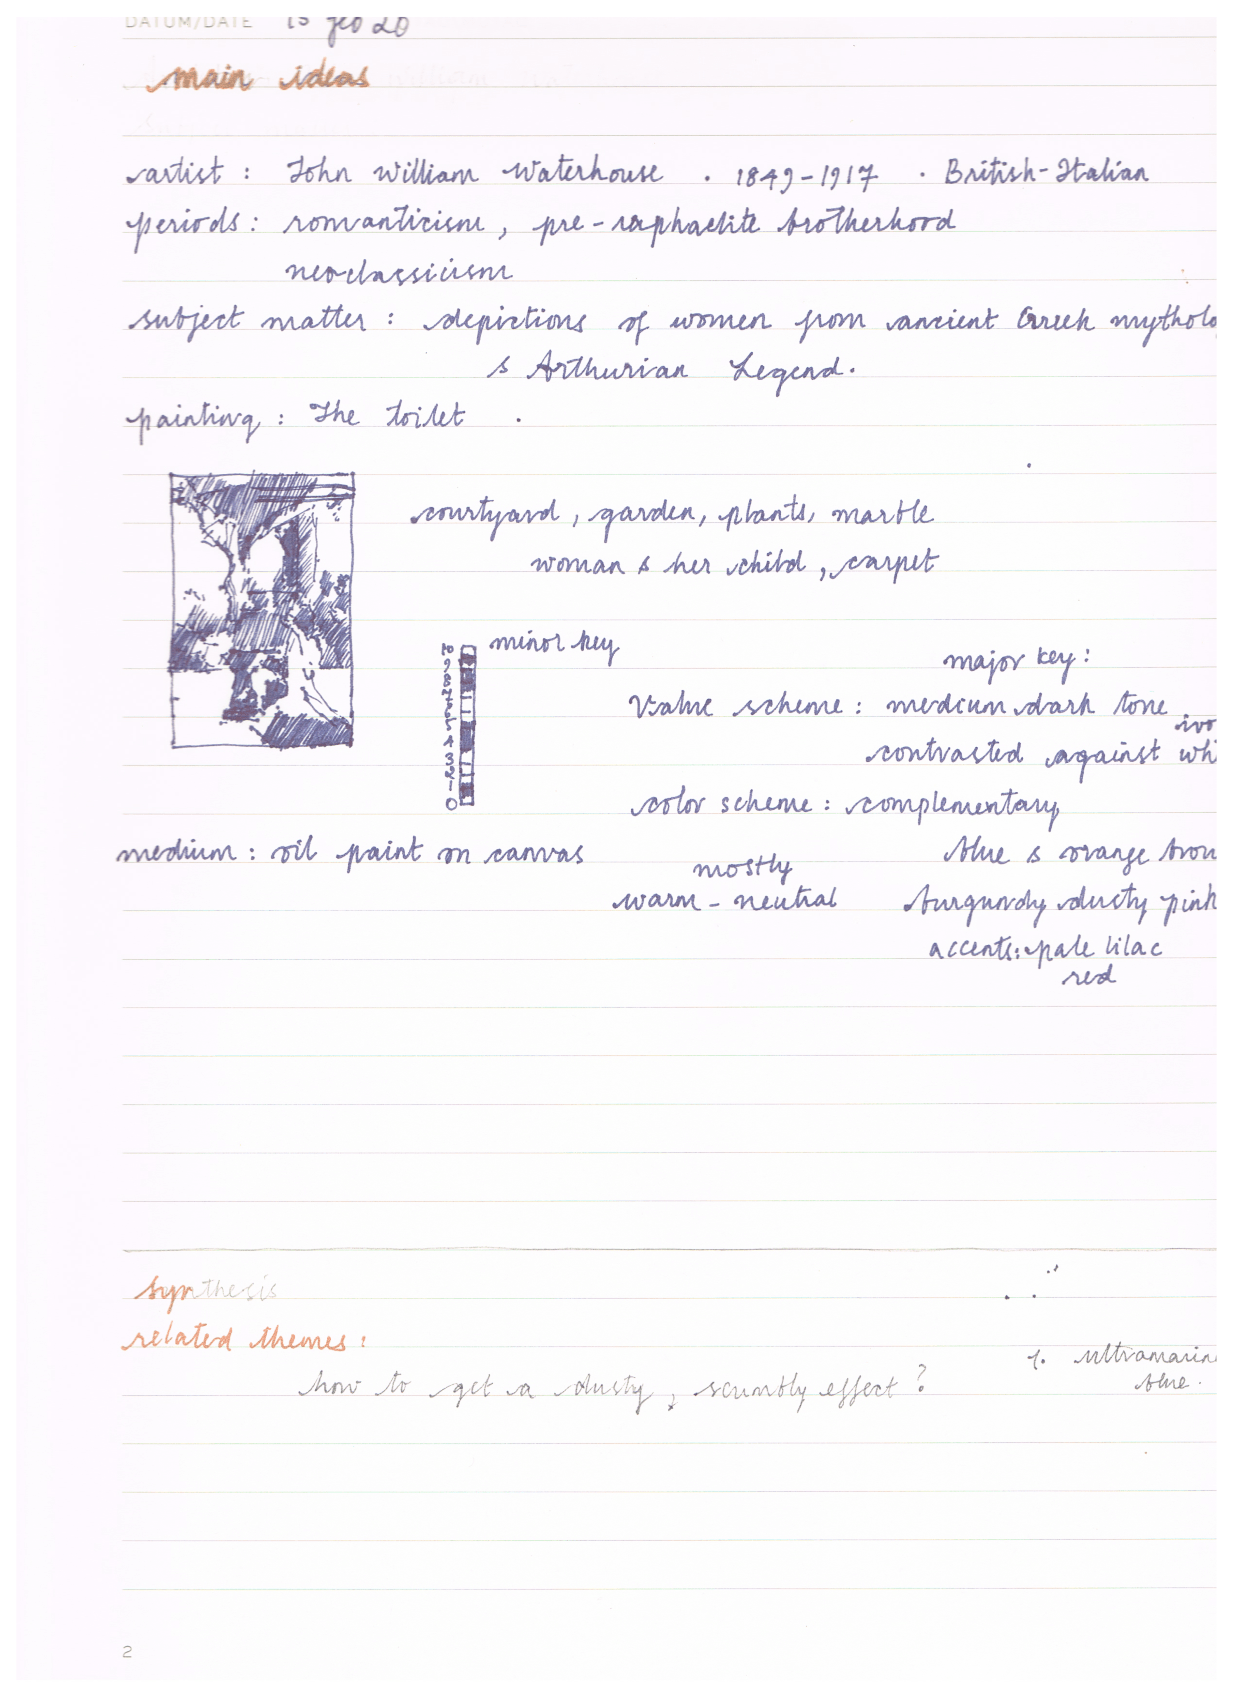 DATUM/DATE 15 feb 20
main ideas
artist : John William Waterhouse . 1849-1917 . British-Italian
periods : romanticism, pre-raphaelite brotherhood
neoclassicism
subject matter : depictions of women from ancient Greek mytholo
& Arthurian Legend.
painting : The toilet .
courtyard, garden, plants, marble
woman & her child, carpet
minor key
10
9
8
7
6
5
4
3
2
1
0
major key :
Value scheme : medium dark tone
contrasted against ivo whi
color scheme : complementary
medium : oil paint on canvas
blue & orange brow
mostly
warm - neutral
burgundy dusty pink
accents: pale lilac
red
synthesis
related themes :
how to get a dusty, scumbly effect ?
1. ultramarin
blue.
2